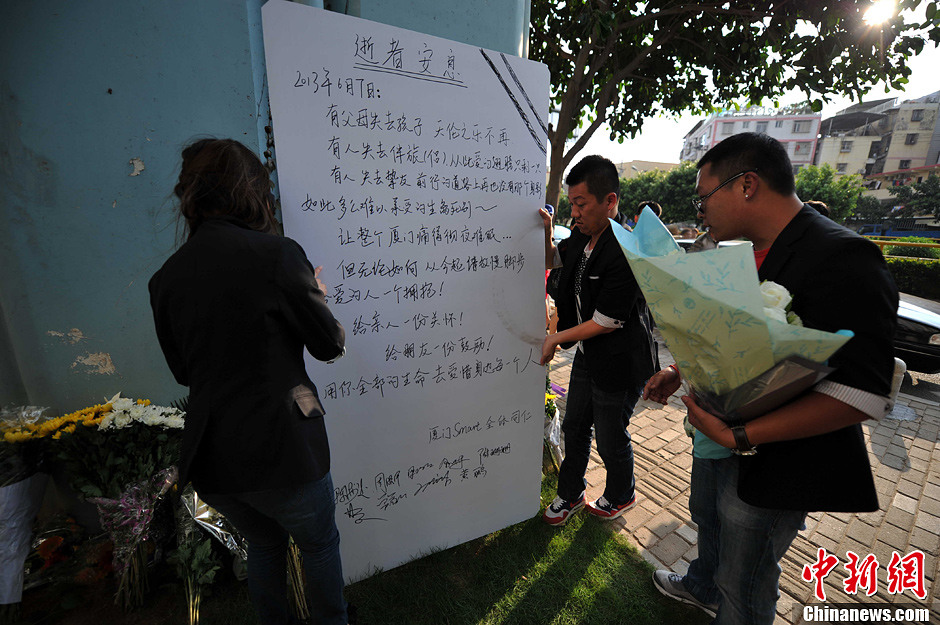 逝者安息
2013年6月7日:
有父母失去孩子 天伦之乐不再
有人失去伴旅(侣)从此爱的翅膀只剩一只
有人失去挚友 前行的道路上再也没有那个身影
如此多么难以承受的生离死别~
让整个厦门痛得彻夜难眠...
但无论如何 从今起请放慢脚步
给爱的人一个拥抱!
给亲人一份关怀!
给朋友一份鼓励!
用你全部的生命去爱惜身边每一个人
厦门Smart 全体同仁
中新网
ChinaNews.com